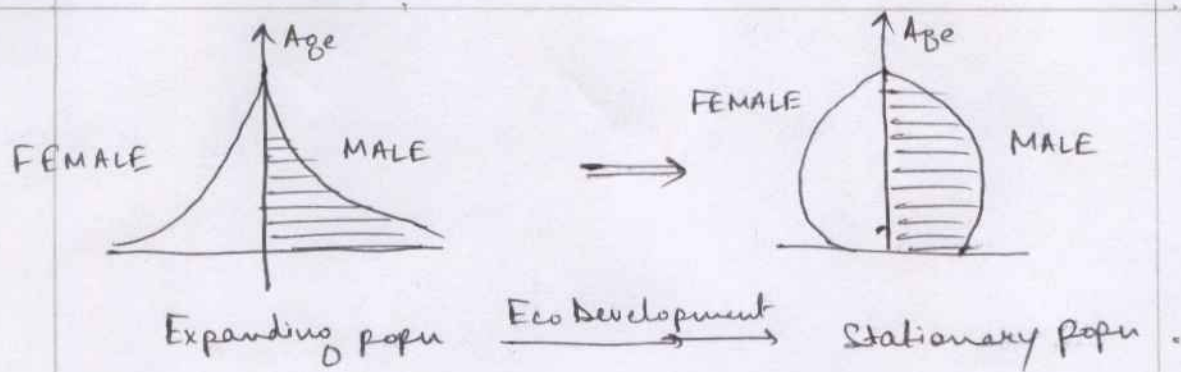 Age
FEMALE
MALE
Age
FEMALE
MALE
Expanding popu
Eco Development
Stationary popu.